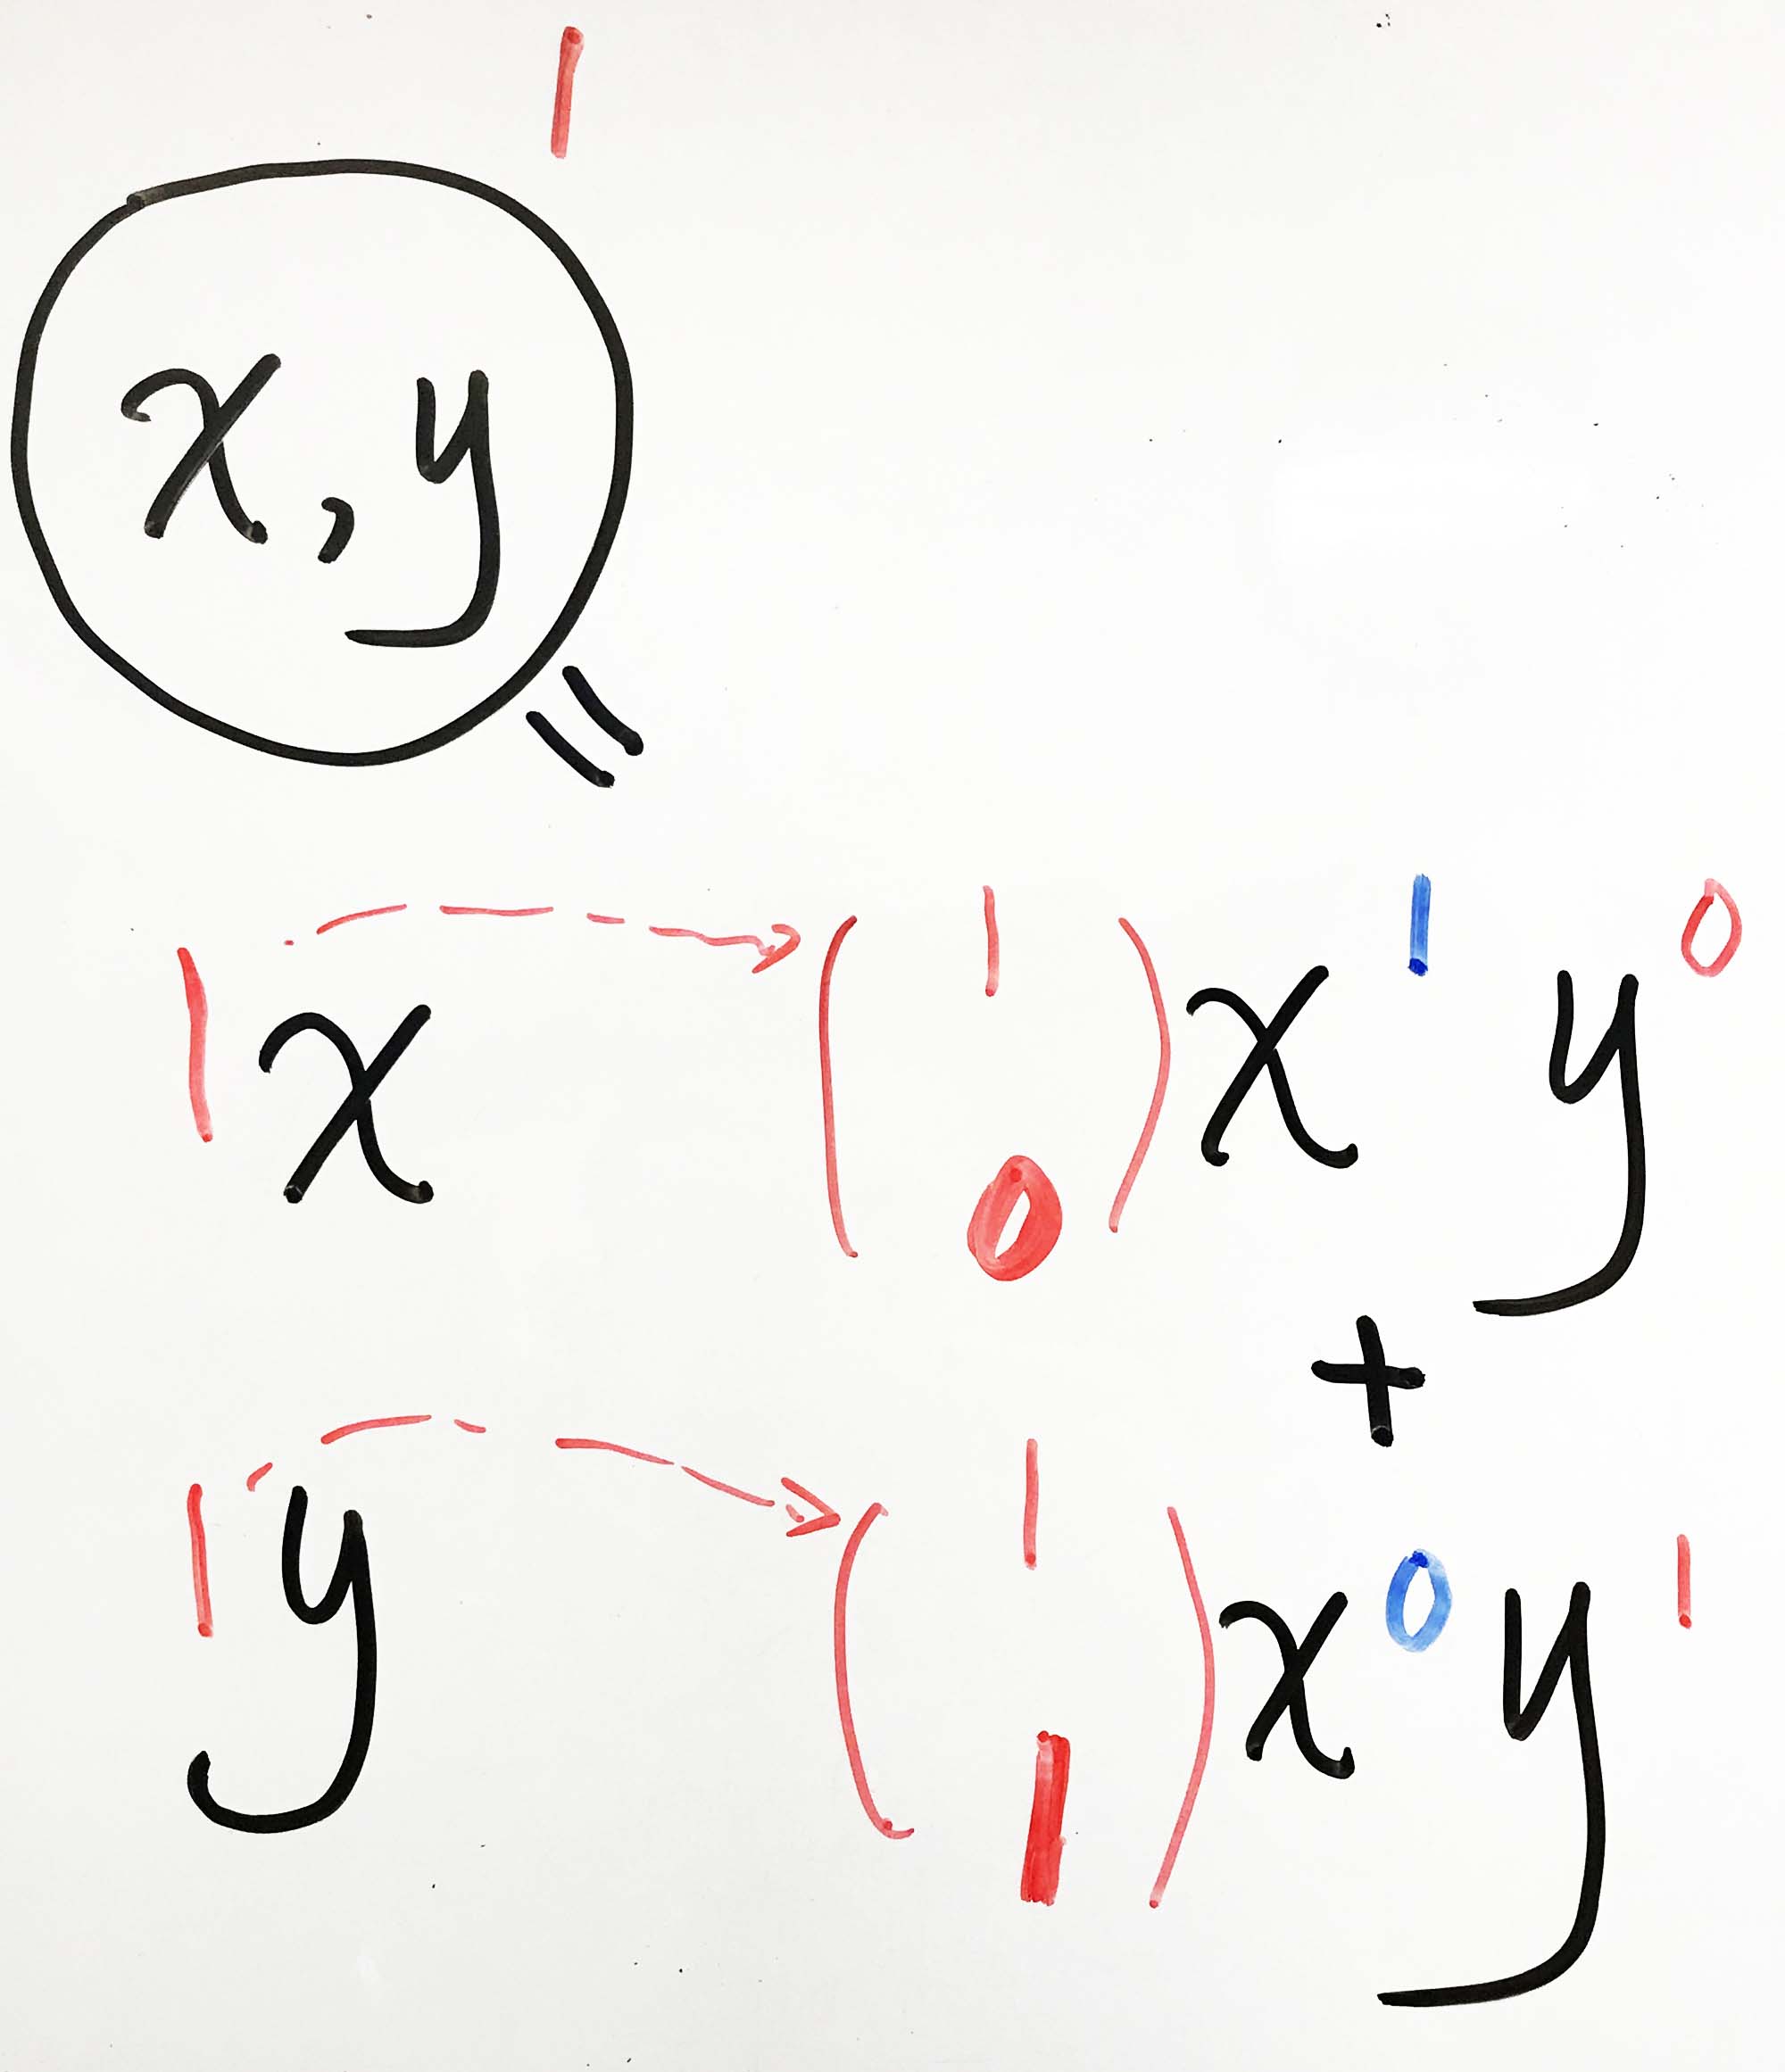 1
x, y
=
1x (1 0) x¹ y⁰
+
1y (1 1) x⁰ y¹